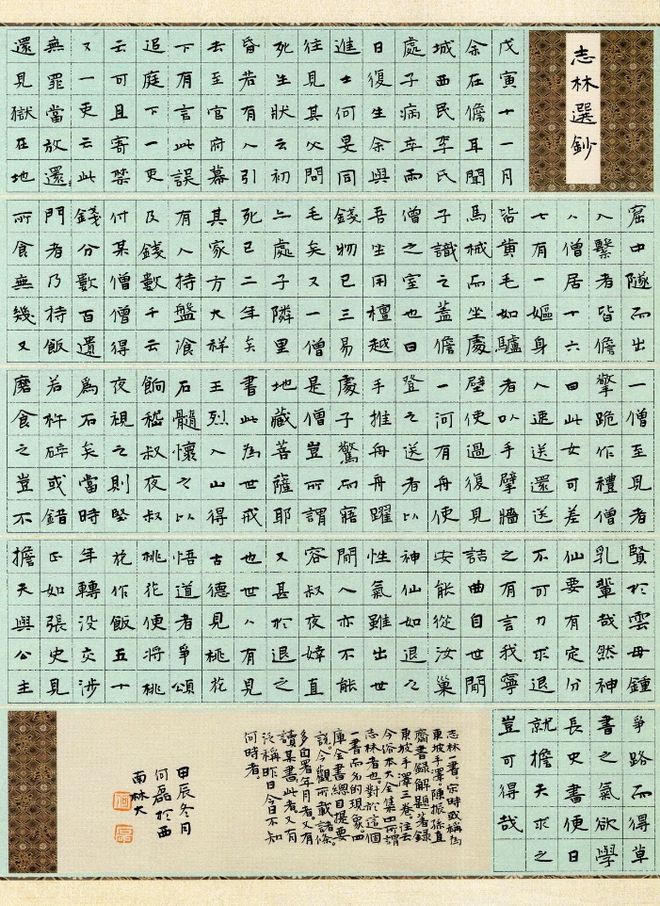 志林選鈔
戊寅十一月
余在儋耳聞
城西民李氏
處子病卒而
日復生余與
進士何旻同
往見其父問
死生狀云初
昏若有人引
去至官府幕
下有言此誤
追庭下一更
云可且寄禁
又一更云此
無罪當放還
還見獄在地
窟中隧而出
入繫者皆儋
人僧居十六
七有一嫗身
皆黃毛如驢
馬械而坐處
子識之蓋儋
僧之室也曰
吾坐用檀越
錢物已三易
毛矣又一僧
亦處子隣里
死已二年矣
其家方大祥
有人持盤飡
及錢數千云
付某僧僧得
錢分數百遺
門者乃持飯
所食無幾又
一僧至見者
擎跪作禮僧
曰此女可差
人速送還送
者以手擘牆
壁使過復見
一河有舟使
登之送者以
手推舟舟躍
處子驚而寤
是僧豈所謂
地藏菩薩耶
書此為世戒
王烈入山得
石髓懷之以
餉嵇叔夜叔
夜視之則堅
為石矣當時
若杵碎或錯
磨食之豈不
賢於雲母鍾
乳輩哉然神
仙要有定分
不可力求退
之有言我寧
詰曲自世間
安能從汝巢
神仙如退之
性氣雖出世
間人亦不能
容叔夜婞直
又甚於退之
也世人有見
古德見桃花
悟道者爭頌
桃花便將桃
花作飯五十
年轉沒交涉
正如張史見
擔夫與公主
爭路而得草
書之氣欲學
長史書便日
就擔夫求之
豈可得哉
志林一書宋時或稱為
東坡手澤陳振孫直
齋書錄解題著錄
東坡手澤三卷注云
今俗本大全集中所謂
志林者也對於這個
一書而名的現象四
庫全書總目提要
說今觀所載諸條
多自署年月者又有
讀某書此者又有
泛稱昨日今日不知
何時者
甲辰冬月
何磊於西
南林大